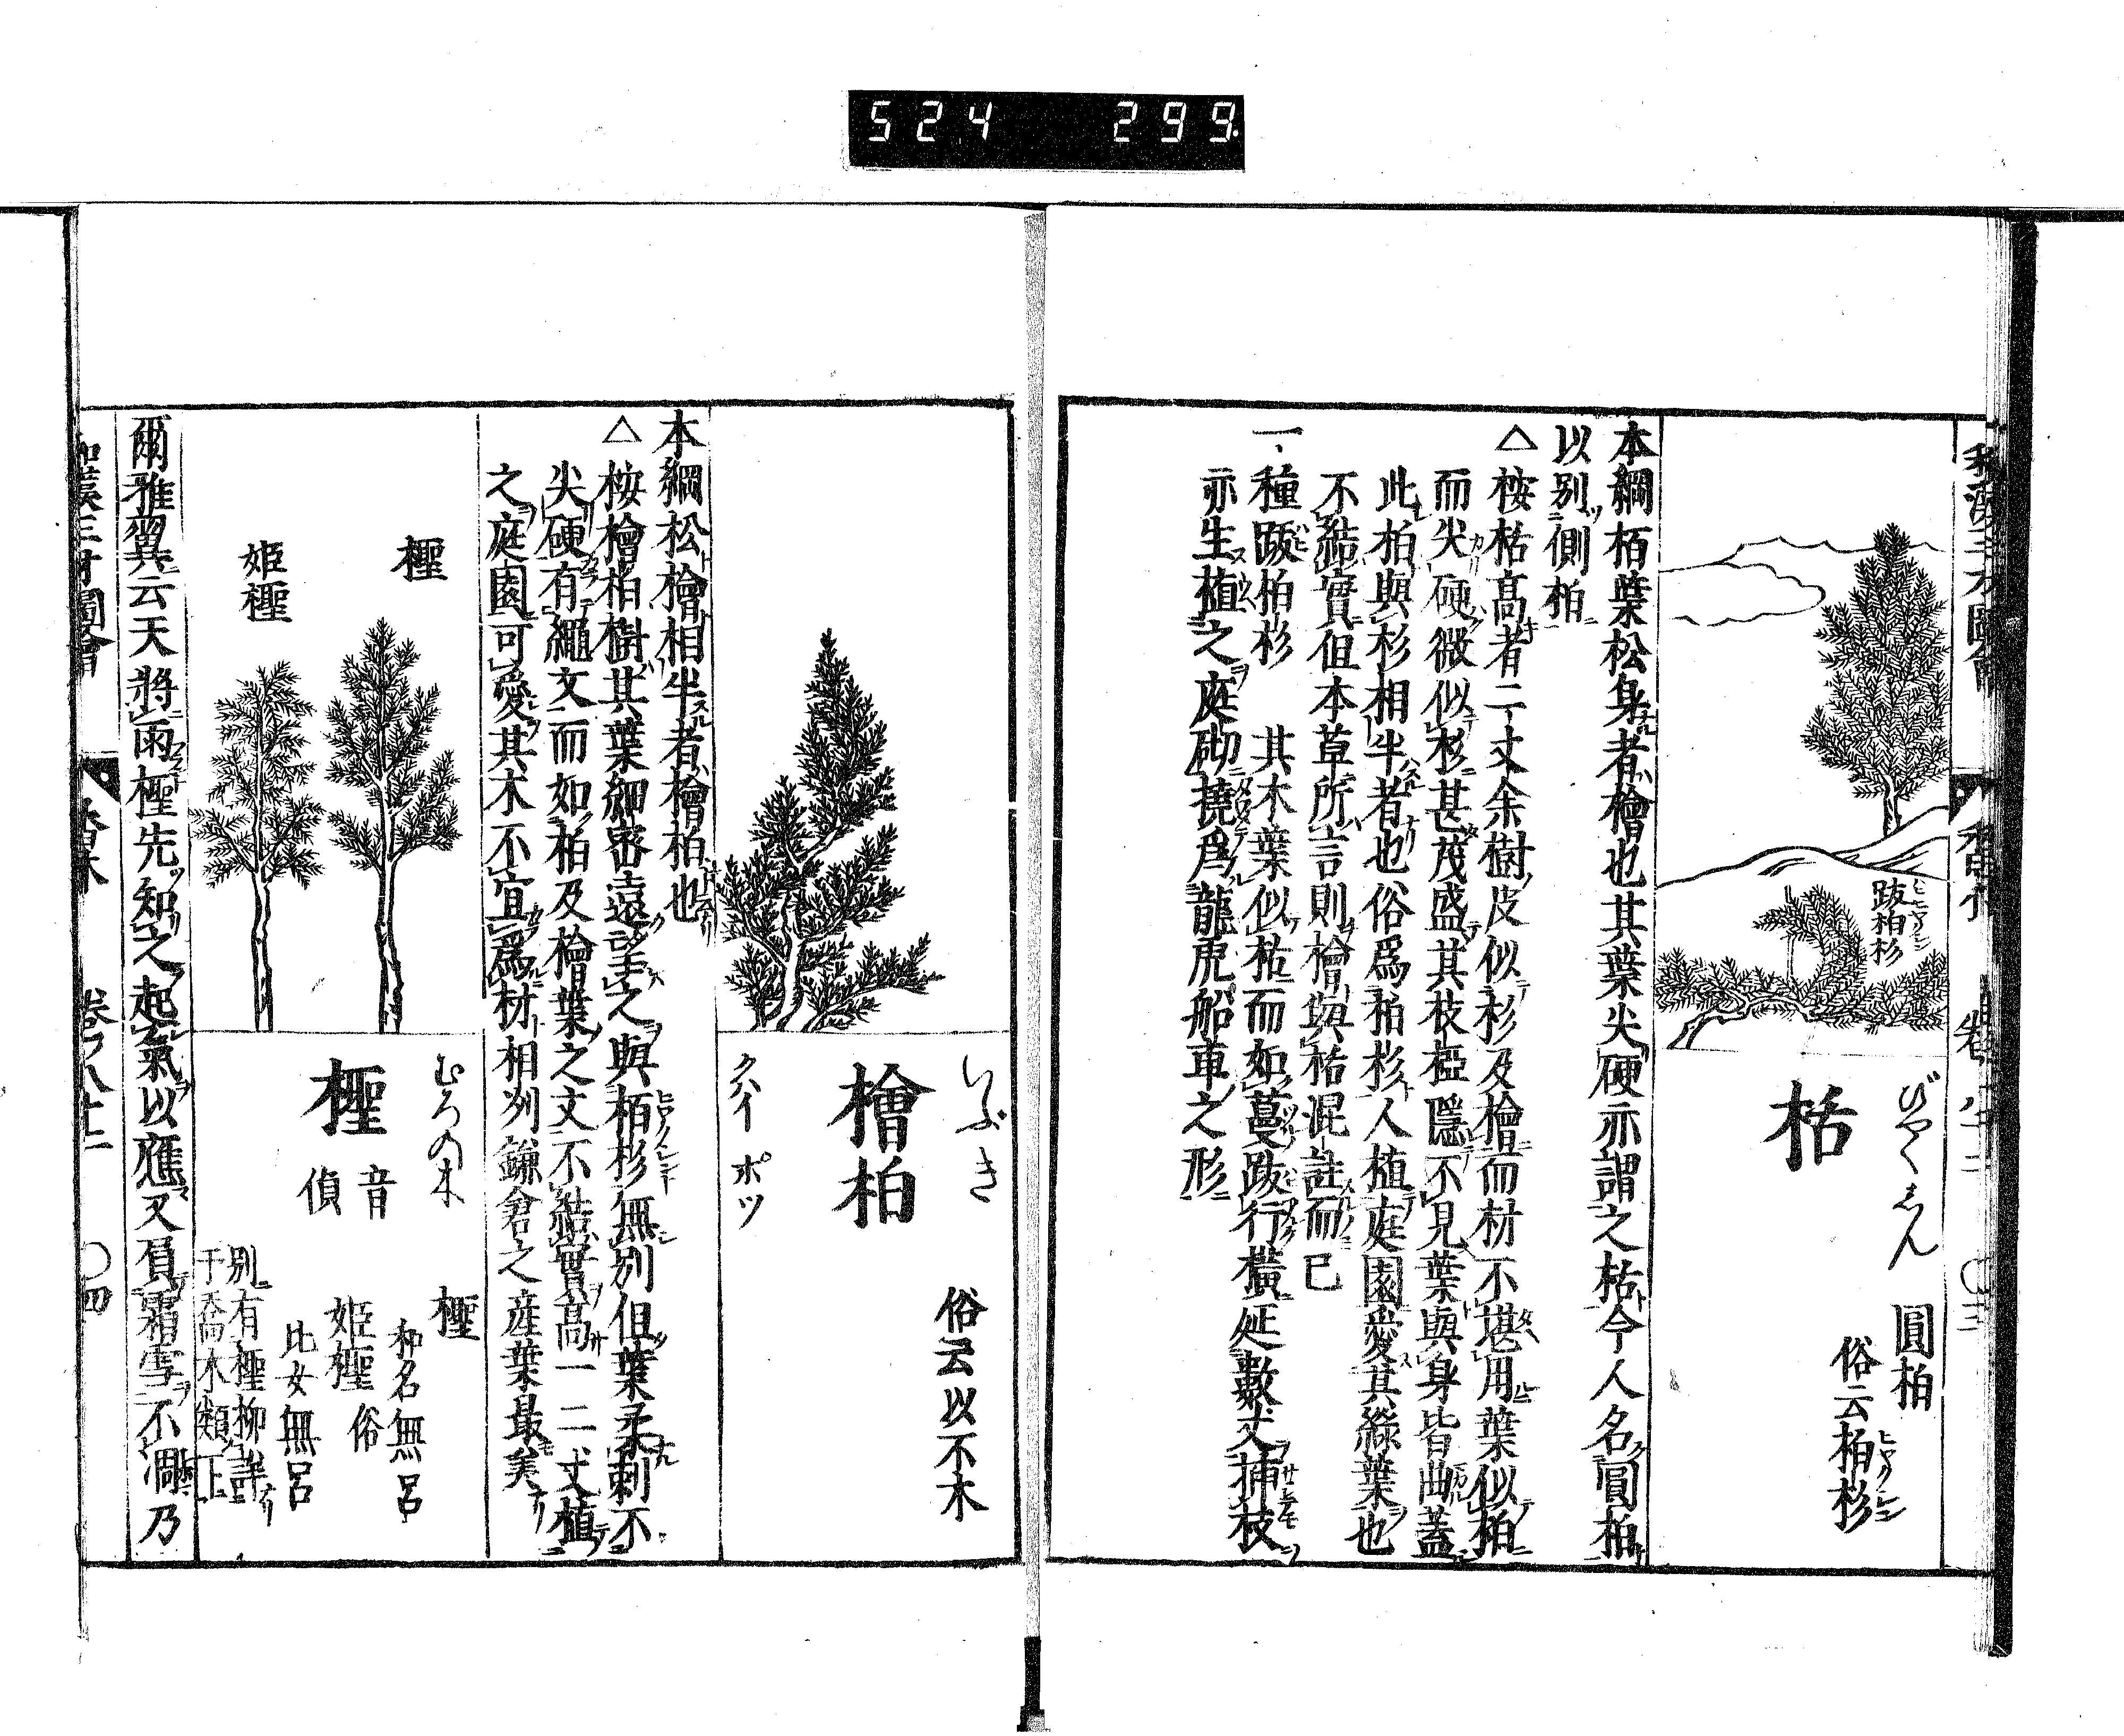 524 299
跋柏杉
ヒヤクシン
びやくしん
栝
圓柏
俗云柏杉
ヒヤクシン
本綱栢葉松身者檜也其葉尖硬亦謂之栝今人名圓柏
以別側柏
△桉栝高者二丈余樹皮似杉及檜而材不堪用葉似柏
而尖硬微似杉甚茂盛其枝椏隱不見葉與身皆曲蓋
此柏與杉相半者也俗爲柏杉人植庭園愛其綠葉也
不結實但本草所言則檜與栝混註而已
一種跋柏杉 其木葉似栝而如蔓跋行橫延數丈揷枝
亦生植之庭砌撓爲龍虎船車之形
いぶき
檜柏
クハイ ポツ
俗云以不木
本綱松檜相半者檜柏也
△桉檜柏樹其葉細密遠望之與栢杉無別但葉柔刺不
尖硬有繩文而如柏及檜葉之文不結實高一二丈植
之庭園可愛其木不宜爲材相州鎌倉之産葉最美
檉
姬檉
むろの木
檉
音
偵
檉
和名無呂
姬檉 俗
比女無呂
別有檉柳詳
于喬木類
爾雅翼云天將雨檉先知之起氣以應又負霜雪不凋乃
和漢三才圖會 香木 卷ノ八十二 〇四